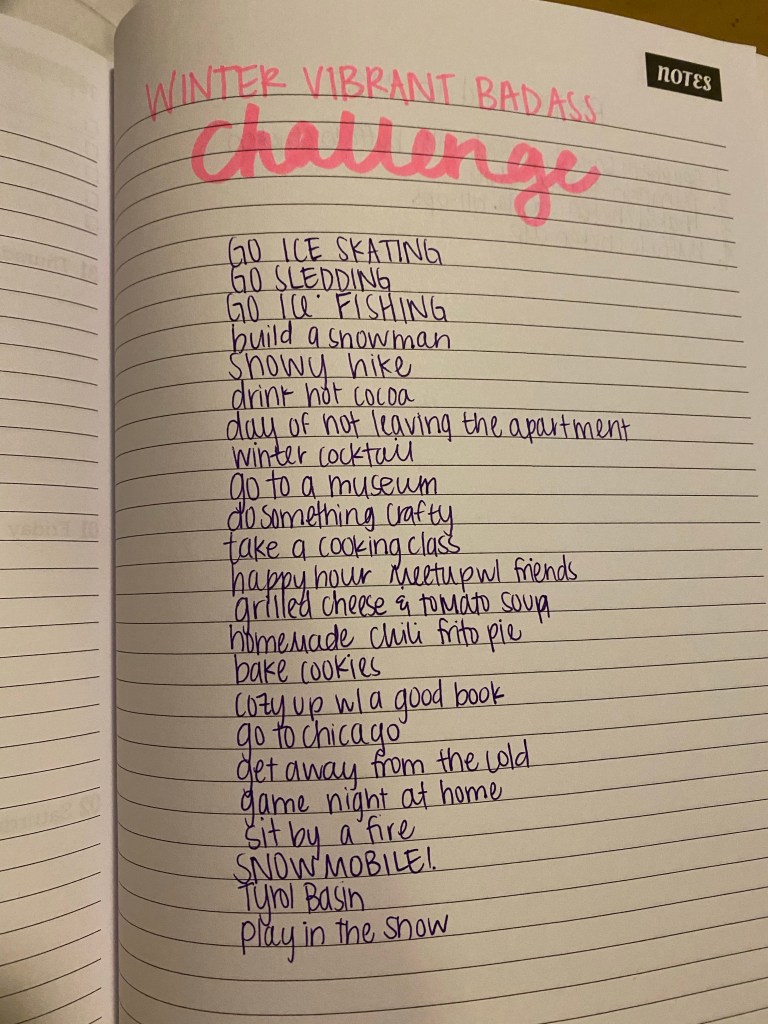 NOTES
WINTER VIBRANT BADASS
Challenge
GO ICE SKATING
GO SLEDDING
GO ICE FISHING
build a snowman
snowy hike
drink hot cocoa
day of not leaving the apartment
winter cocktail
go to a museum
do something crafty
take a cooking class
happy hour meetup w/ friends
grilled cheese & tomato soup
homemade chili frito pie
bake cookies
cozy up w/ a good book
go to chicago
get away from the cold
game night at home
sit by a fire
SNOWMOBILE!
Tyrol Basin
play in the snow